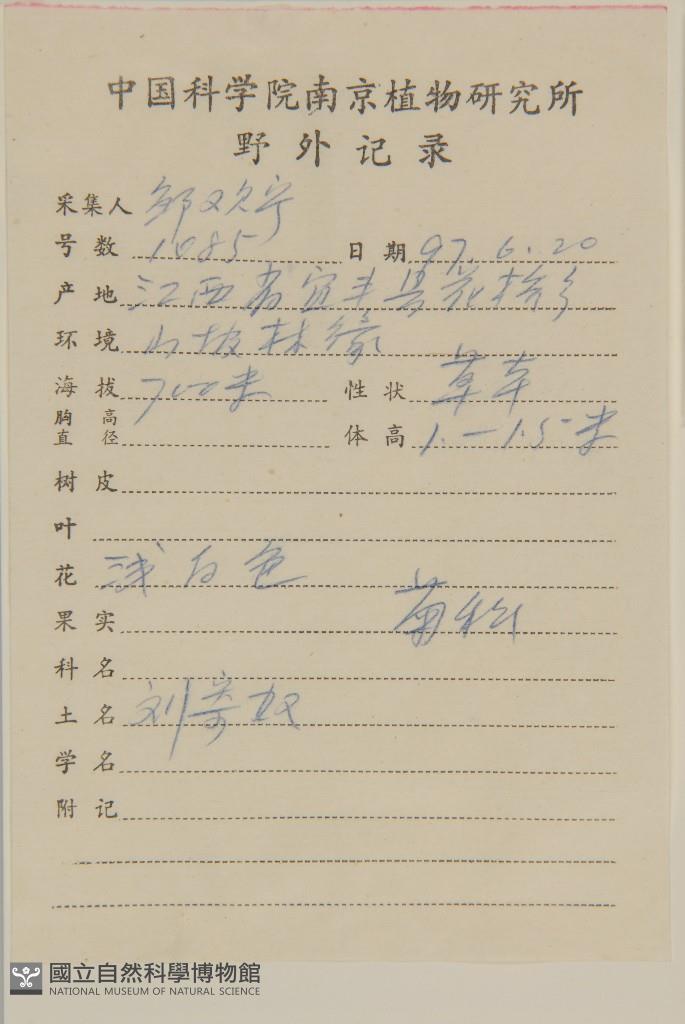 中国科学院南京植物研究所
野外记录
采集人 邹欢宁
号数 1085 日期 97.6.20
产地 江西省宜丰县花桥乡
环境 山坡林缘
海拔 700米 性状 草本
胸高直径 体高 1.—1.5米
树皮
叶
花 浅白色
果实 菊科
科名
土名 刘寄奴
学名
附记
國立自然科學博物館
NATIONAL MUSEUM OF NATURAL SCIENCE